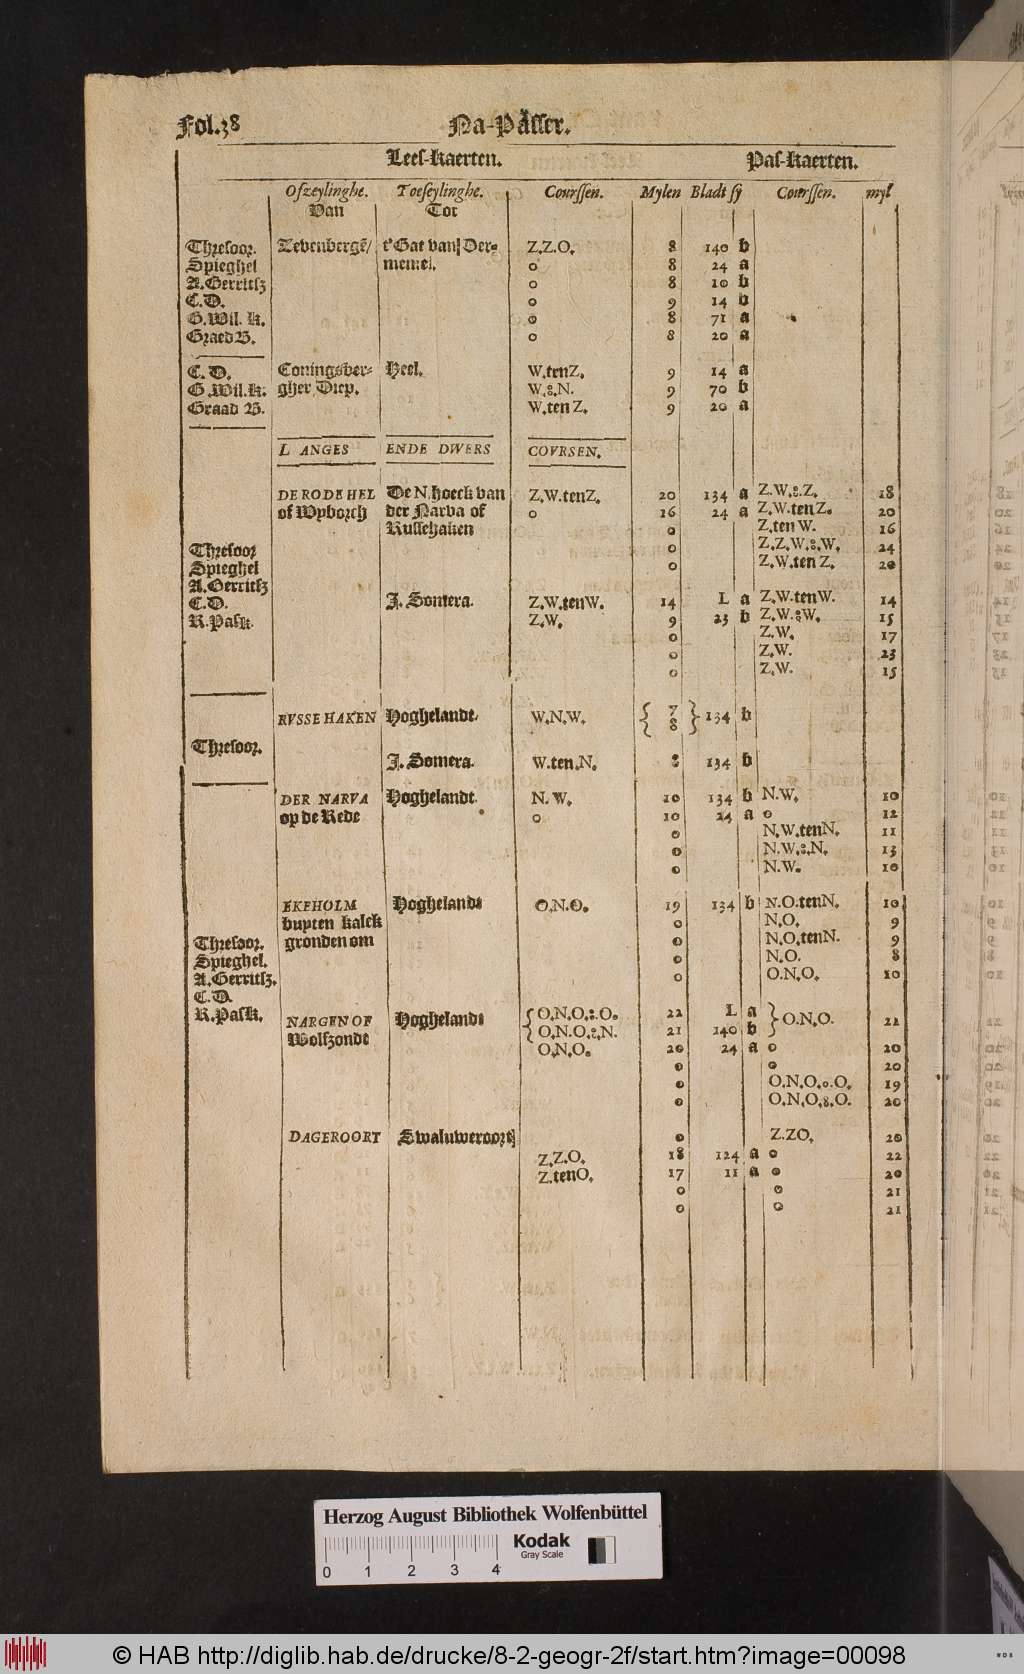 Fol.38 Na-Pässer.
Lees-kaerten. Pas-kaerten.
Ofzeylinghe. Toeseylinghe. Courssen. Mylen Bladt sy Courssen. myl
Van Tot
Thresoor. Zevenbergē/ t'Gat van Der- Z.Z.O. 8 140 b
Spieghel memel. o 8 24 a
A.Gerritsz o 8 10 b
C.D. o 9 14 b
G.Wil. k. o 8 71 a
Graed B. o 8 20 a
C.D. Coningsber- Heel. W.tenZ. 9 14 a
G.Wil.k. gher Diep. W.8.N. 9 70 b
Graad B. W.ten Z. 9 20 a
LANGES ENDE DWERS COVRSEN.
DE RODE HEL De N.hoeck van Z.W.tenZ. 20 134 a Z.W.8.Z. 18
of Wyborch der Narva of o 16 24 a Z.W.tenZ. 20
Russehaken o Z.ten W. 16
Thresoor o Z.Z.W.8.W. 24
Spieghel o Z.W.ten Z. 20
A.Gerritsz
C.D. J. Somera. Z.W.tenW. 14 L a Z.W.tenW. 14
R.Pask. Z.W. 9 23 b Z.W.8W. 15
o Z.W. 17
o Z.W. 23
o Z.W. 15
RVSSE HAKEN Hoghelandt. W.N.W. { 7 8 } 134 b
Thresoor.
J. Somera. W.ten.N. 8 134 b
DER NARVA Hoghelandt. N.W. 10 134 b N.W. 10
op de Rede o 10 24 a o 12
o N.W.tenN. 11
o N.W.8.N. 13
o N.W. 10
EKEHOLM Hoghelandt O.N.O. 19 134 b N.O.tenN. 10
buyten kalck o N.O. 9
Thresoor. gronden om o N.O.tenN. 9
Spieghel. o N.O. 8
A.Gerritsz. o O.N.O. 10
C.D.
R.Pask. NARGEN OF Hoghelandt { O.N.O.8.O. 22 L a } O.N.O. 21
Wolfzondt O.N.O.8.N. 21 140 b
O.N.O. 20 24 a o 20
o o 20
o O.N.O.8.O. 19
o O.N.O.8.O. 20
DAGEROORT Swaluweroort] o Z.ZO. 20
Z.Z.O. 18 124 a o 22
Z.tenO. 17 11 a o 20
o o 21
o o 21
Herzog August Bibliothek Wolfenbüttel
Kodak
Gray Scale
0 1 2 3 4
© HAB http://diglib.hab.de/drucke/8-2-geogr-2f/start.htm?image=00098